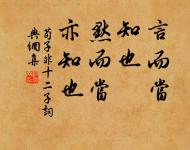 言而當
知也
默而當
亦知也
荀子非十二子詞
典網集